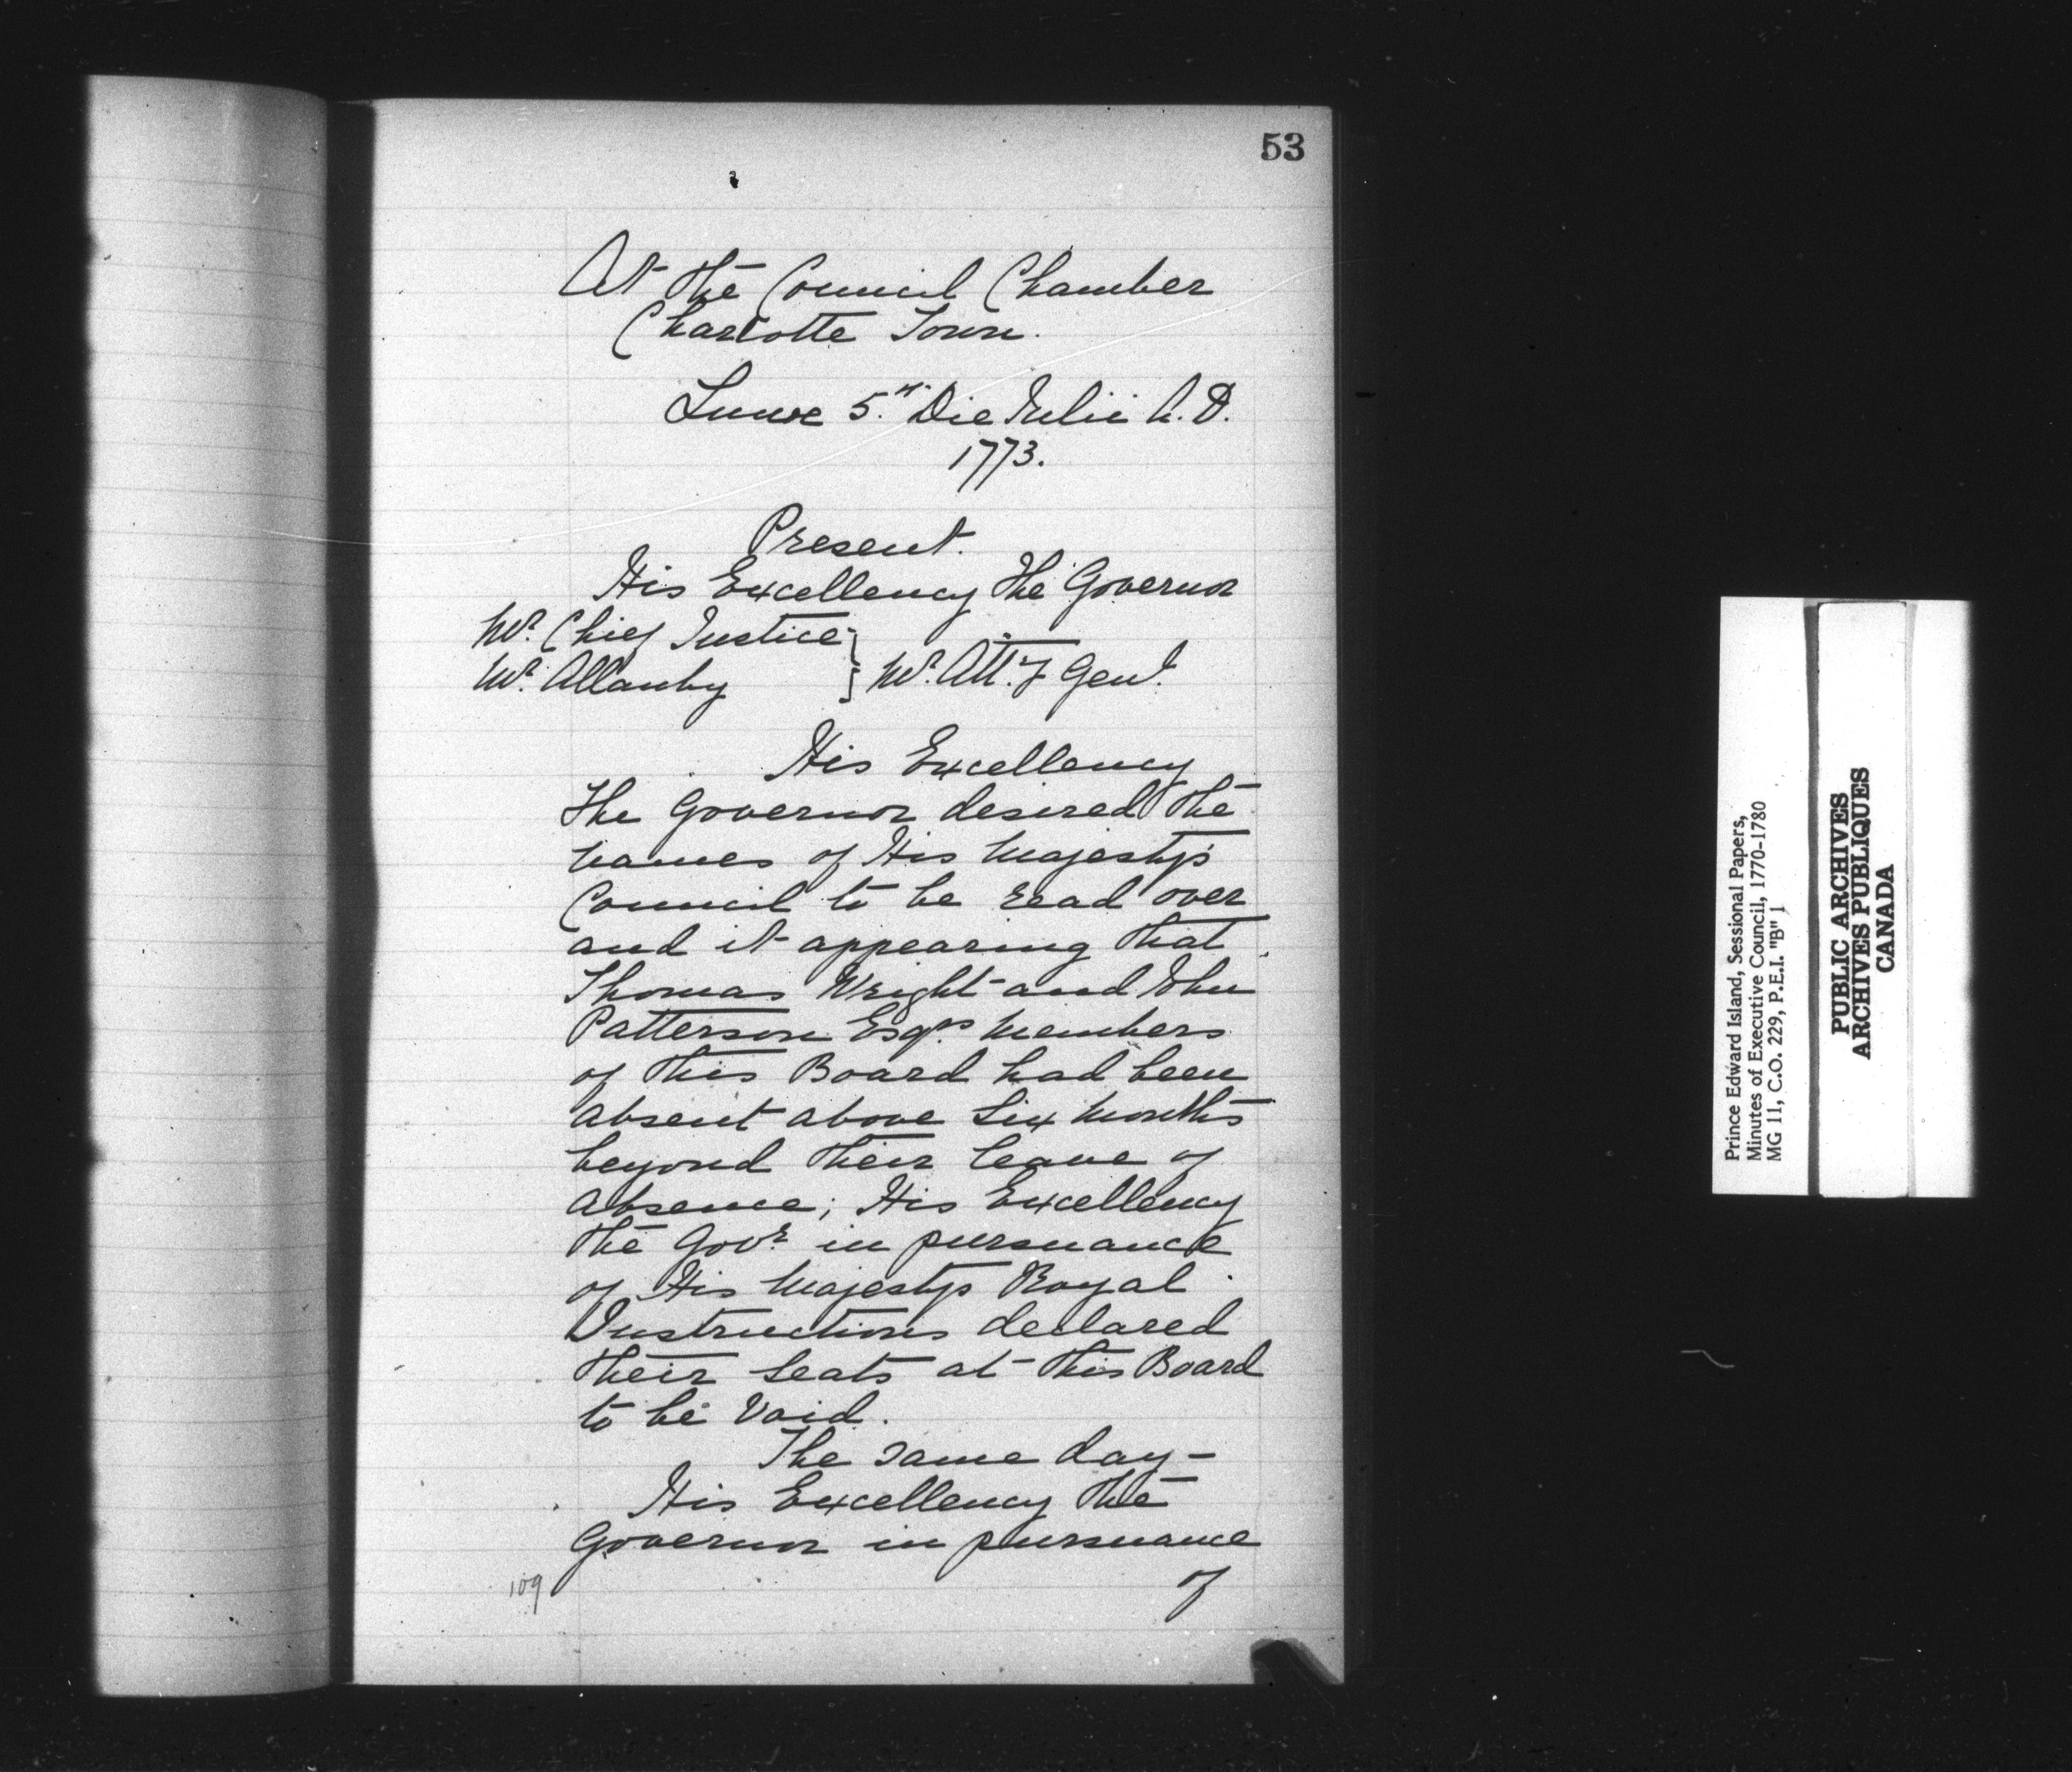 53
At the Council Chamber
Charlotte Town.
Lunæ 5.th Die Julii A.D.
1773.
Present.
His Excellency the Governor
Mr. Chief Justice }
Mr. Allanby } Mr. Att.y Genl.
His Excellency
the Governor desired the
names of His Majesty's
Council to be read over
and it appearing that
Thomas Wright and John
Patterson Esqrs. Members
of this Board had been
absent above Six Months
beyond their leave of
absence; His Excellency
the Govr. in pursuance
of His Majestys Royal
Instructions declared
their Seats at this Board
to be Void.
The same day —
His Excellency the
Governor in pursuance
of
109
Prince Edward Island, Sessional Papers,
Minutes of Executive Council, 1770-1780
MG 11, C.O. 229, P.E.I. "B" 1
PUBLIC ARCHIVES
ARCHIVES PUBLIQUES
CANADA